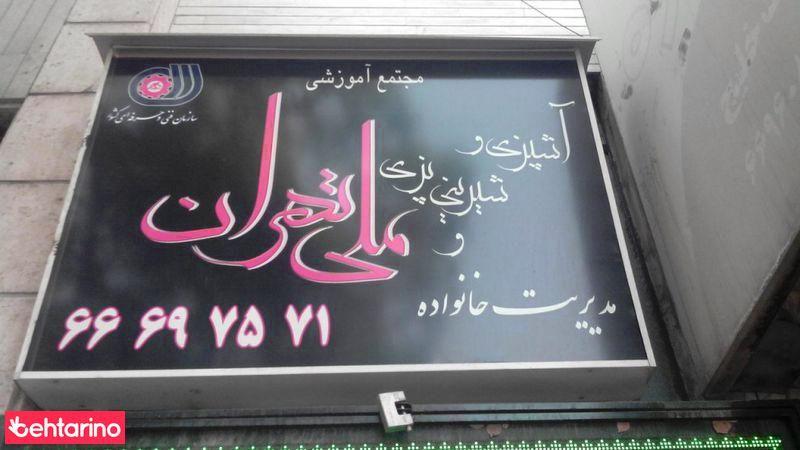 مجتمع آموزشی
سازمان فنی و حرفه‌ای کشور
آشپزی و
شیرینی پزی
و
مدیریت خانواده
ملی تهران
۶۶ ۶۹ ۷۵ ۷۱
behtarino